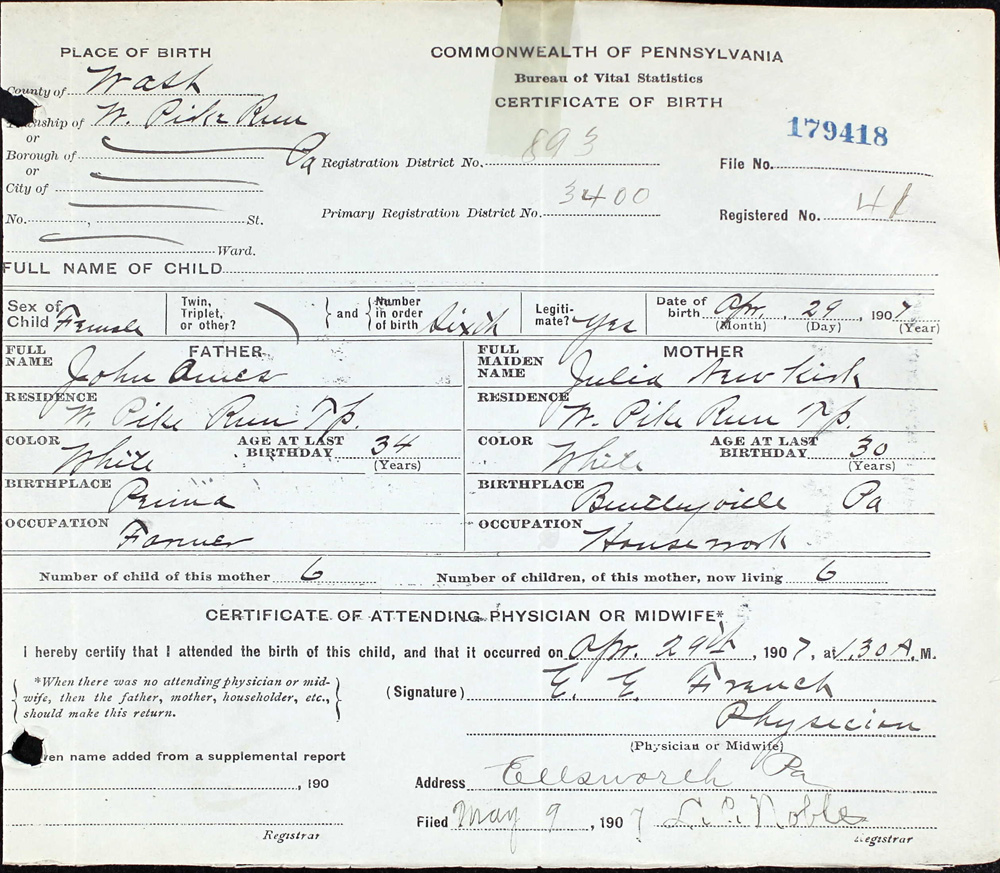 PLACE OF BIRTH
COMMONWEALTH OF PENNSYLVANIA
Bureau of Vital Statistics
CERTIFICATE OF BIRTH
County of Wash
Township of W. Pike Run
or
Borough of
Pa
or
City of
No. , St.
Ward.
179418
Registration District No. 893
File No.
Primary Registration District No. 3400
Registered No. 41
FULL NAME OF CHILD
Sex of Child Female
Twin, Triplet, or other?
and
Number in order of birth Sixth
Legiti-mate? Yes
Date of birth Apr. 29, 1907
(Month) (Day) (Year)
FATHER
FULL NAME John Ames
RESIDENCE W. Pike Run Tp.
COLOR White AGE AT LAST BIRTHDAY 34
(Years)
BIRTHPLACE Penna
OCCUPATION Farmer
MOTHER
FULL MAIDEN NAME Julia Newkirk
RESIDENCE W. Pike Run Tp.
COLOR White AGE AT LAST BIRTHDAY 30
(Years)
BIRTHPLACE Bentleyville Pa
OCCUPATION Housework
Number of child of this mother 6 Number of children, of this mother, now living 6
CERTIFICATE OF ATTENDING PHYSICIAN OR MIDWIFE*
I hereby certify that I attended the birth of this child, and that it occurred on Apr. 29th, 1907, at 1.30 A. M.
*When there was no attending physician or mid-
wife, then the father, mother, householder, etc.,
should make this return.
(Signature) E. E. French
Physician
(Physician or Midwife)
ven name added from a supplemental report
, 190
Registrar
Address Ellsworth Pa
Filed May 9, 1907 Noble
Registrar